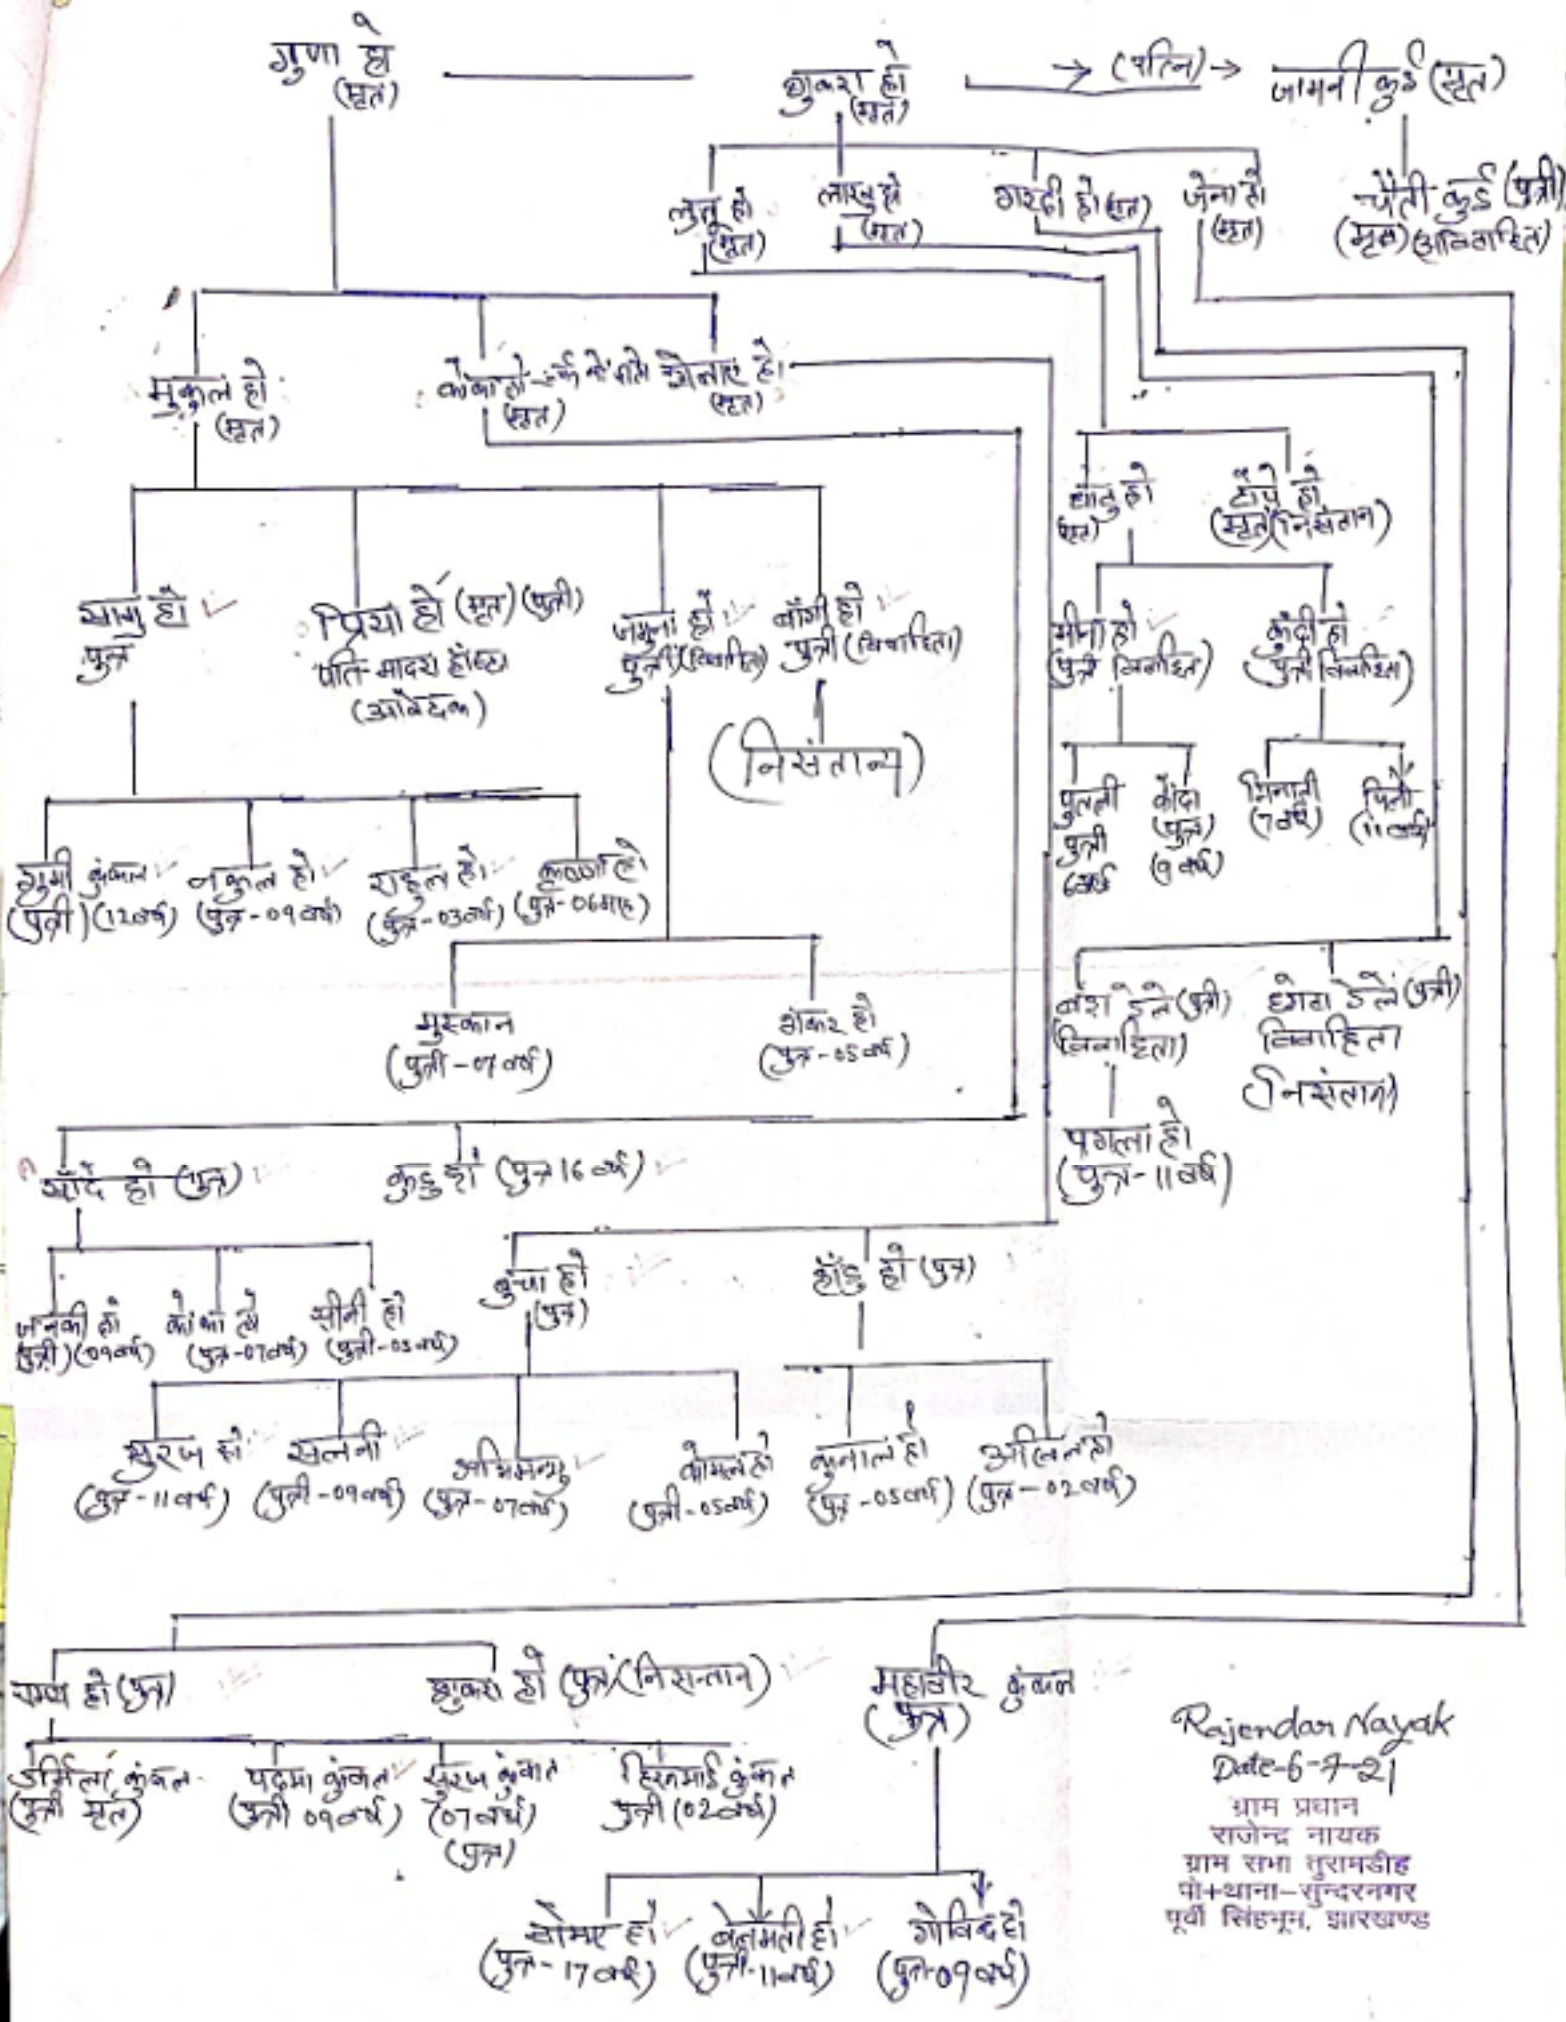 गुणा हो
(मृत)
शुकरा हो
(मृत)
(पत्नि)
जामनी कुई (मृत)
लुतू हो
(मृत)
लाखु हो
(मृत)
गारदी हो (मृत)
जेना हो
(मृत)
चैती कुई (पुत्री)
(मृत) (अविवाहित)
मुकुल हो
(मृत)
कोका हो
(मृत)
हो
(मृत)
हो
(मृत)
हो
(मृत) (निसंतान)
सामु हो
पुत्र
प्रिया हो (मृत) (पुत्री)
पति-
(आवेदक)
जमुना हो
पुत्री (विवाहिता)
हो
पुत्री (विवाहिता)
(निसंतान)
मीना हो
(पुत्री विवाहित)
कुंदी हो
(पुत्री विवाहिता)
पुतली
पुत्री
6 वर्ष
कोंदा
(पुत्र)
(9 वर्ष)
मिनाती
(7 वर्ष)
(11 वर्ष)
शुमी कुंकल
(पुत्री) (12 वर्ष)
नकुल हो
(पुत्र-09 वर्ष)
राहुल हो
(पुत्र-03 वर्ष)
कृष्णा हो
(पुत्र-06 माह)
मुस्कान
(पुत्री-07 वर्ष)
शंकर हो
(पुत्र-05 वर्ष)
(पुत्री)
(विवाहिता)
(पुत्री)
विवाहिता
(निसंतान)
पगला हो
(पुत्र-11 वर्ष)
हो (पुत्र)
(पुत्र 16 वर्ष)
जानकी हो
(पुत्री) (09 वर्ष)
कोका हो
(पुत्र-07 वर्ष)
सीनी हो
(पुत्री-05 वर्ष)
बुधा हो
(पुत्र)
हो (पुत्र)
सुरज हो
(पुत्र-11 वर्ष)
सलनी
(पुत्री-09 वर्ष)
अभिमन्यु
(पुत्र-07 वर्ष)
कोमल हो
(पुत्री-05 वर्ष)
कुनाल हो
(पुत्र-05 वर्ष)
हो
(पुत्र-02 वर्ष)
हो (पुत्र)
शुकरा हो (पुत्र) (निसन्तान)
महाबीर कुंकल
(पुत्र)
उर्मिला कुंकल
(पुत्री मृत)
पदमा कुंकल
(पुत्री 09 वर्ष)
सुरज कुंकल
(07 वर्ष)
(पुत्र)
कुंकल
पुत्री (02 वर्ष)
सोमाए हो
(पुत्र-17 वर्ष)
बेलमती हो
(पुत्री-11 वर्ष)
गोविन्द हो
(पुत्र-09 वर्ष)
Rajendar Nayak
Date-6-7-21
ग्राम प्रधान
राजेन्द्र नायक
ग्राम सभा तुरामडीह
पो+थाना-सुन्दरनगर
पूर्वी सिंहभूम, झारखण्ड